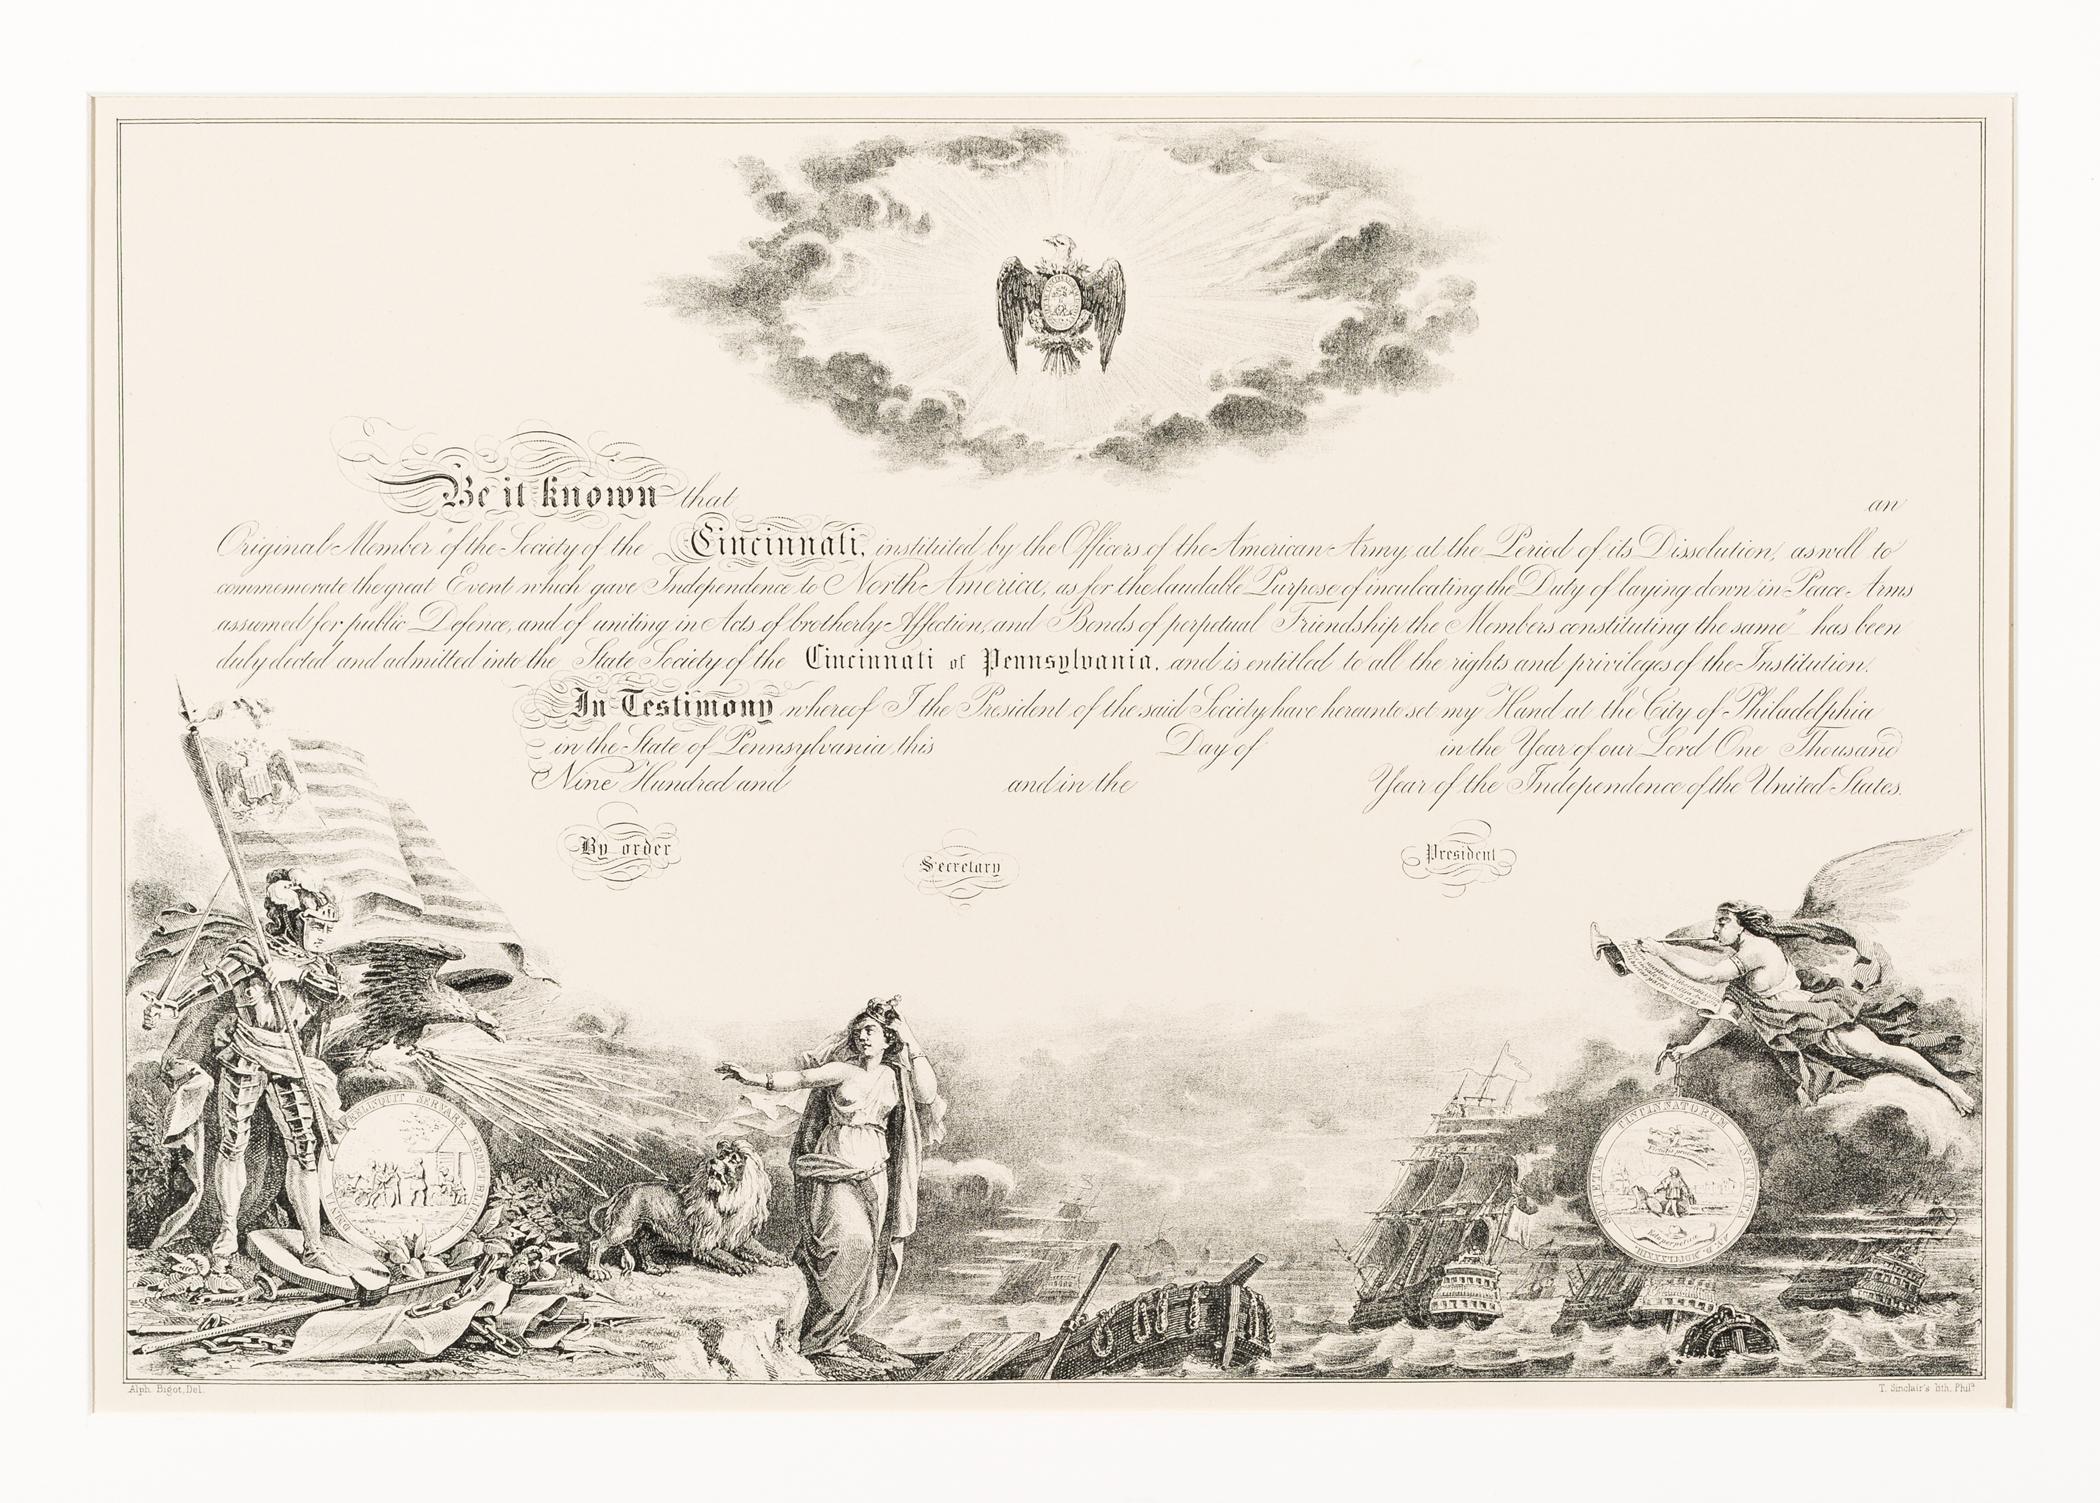 Be it known that an
Original Member "of the Society of the Cincinnati, instituted by the Officers of the American Army, at the Period of its Dissolution, as well to
commemorate the great Event which gave Independence to North America, as for the laudable Purpose of inculcating the Duty of laying down in Peace Arms
assumed for public Defence, and of uniting in Acts of brotherly Affection, and Bonds of perpetual Friendship the Members constituting the same" has been
duly elected and admitted into the State Society of the Cincinnati of Pennsylvania, and is entitled to all the rights and privileges of the Institution.
In Testimony whereof I the President of the said Society have hereunto set my Hand at the City of Philadelphia
in the State of Pennsylvania, this Day of in the Year of our Lord One Thousand
Nine Hundred and and in the Year of the Independence of the United States.
By order
Secretary
President
RELEQUIT SERVARE REMPUBLICAM
SOCIETAS CINCINNATORUM INSTITUTA A.D. MDCCLXXXIII
Alph. Bigot, Del.
T. Sinclair's lith, Phila